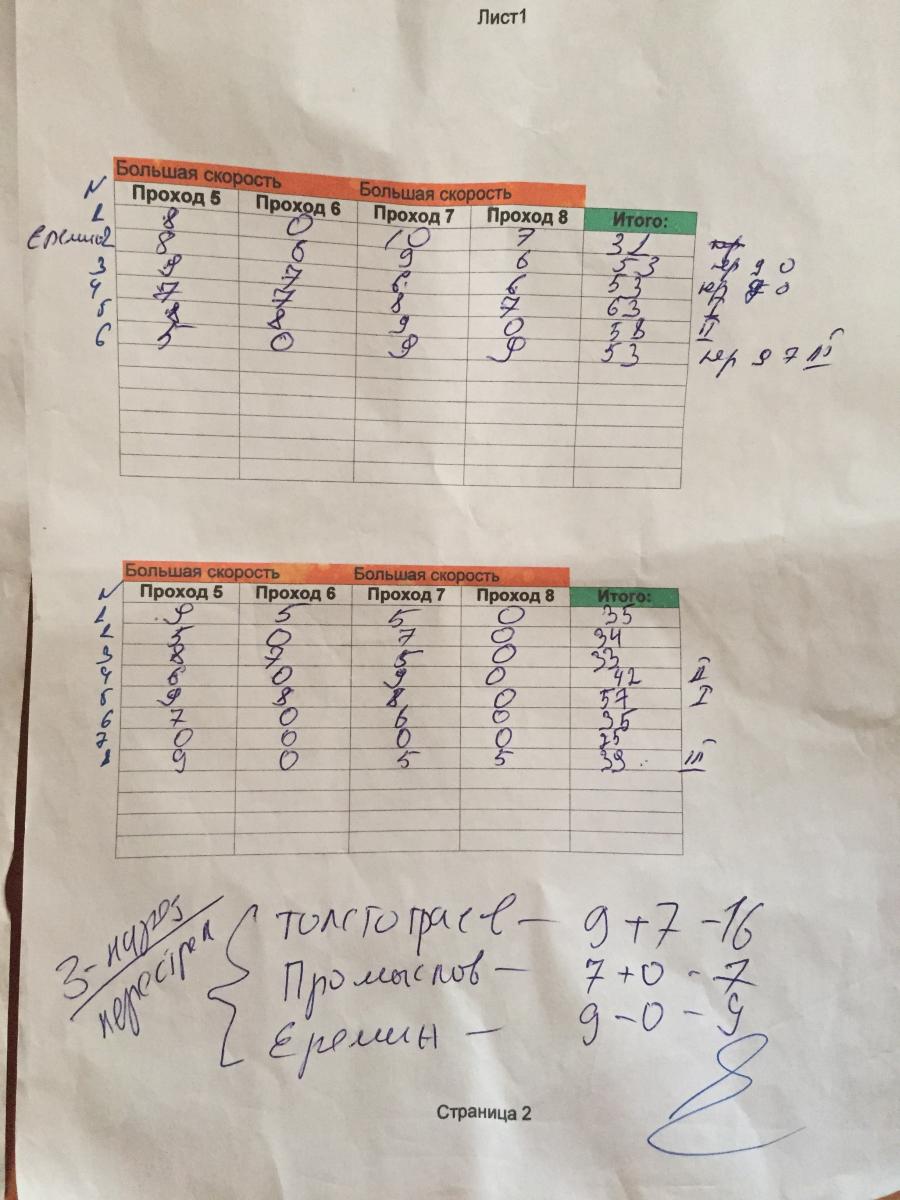 Лист1
Большая скорость Большая скорость
N Проход 5 Проход 6 Проход 7 Проход 8 Итого:
1 8 0 10 7 32 пер
Еремин 2 8 6 9 6 53 пер 9 0
3 9 7 6 6 53 пер 7 0
4 7 7 8 7 63 I
5 8 8 9 0 58 II
6 5 0 9 9 53 пер 9 7 III
Большая скорость Большая скорость
N Проход 5 Проход 6 Проход 7 Проход 8 Итого:
1 9 5 5 0 35
2 5 0 7 0 34
3 8 7 5 0 33
4 6 0 9 0 42 II
5 9 8 8 0 57 I
6 7 0 6 0 35
7 0 0 0 0 25
9 0 5 5 39 III
Толстопяев — 9 + 7 - 16
3-
перестрел
Промыслов — 7 + 0 - 7
Еремин — 9 - 0 - 9
Страница 2